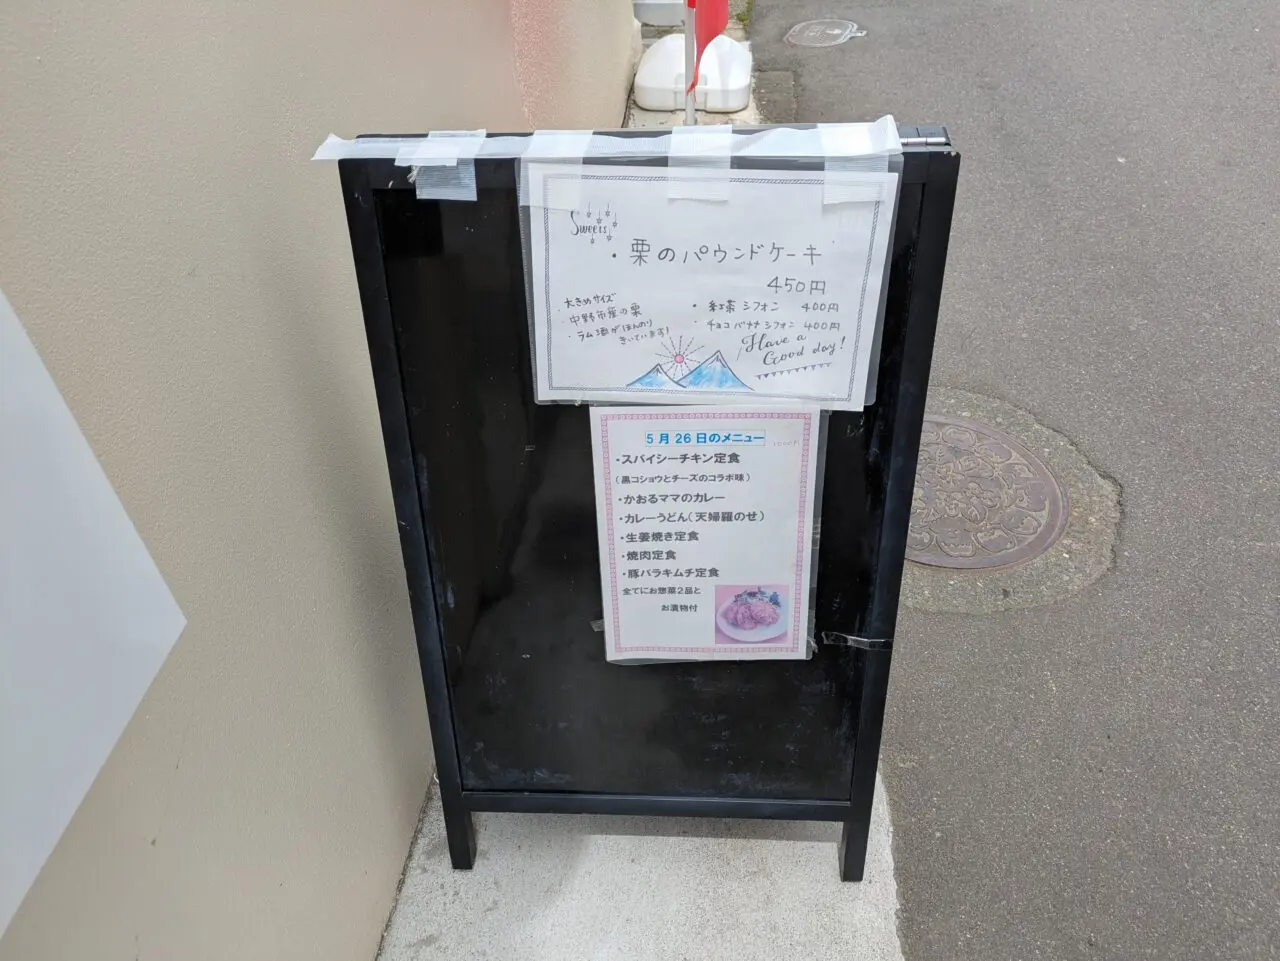 Sweets
・栗のパウンドケーキ
450円
大きめサイズ
・中野市産の栗
・ラム酒がほんのり
きいています!
・紅茶シフォン 400円
・チョコバナナシフォン 400円
Have a
Good day!
5月26日のメニュー
・スパイシーチキン定食
(黒コショウとチーズのコラボ味)
・かおるママのカレー
・カレーうどん(天婦羅のせ)
・生姜焼き定食
・焼肉定食
・豚バラキムチ定食
全てにお惣菜2品と
お漬物付